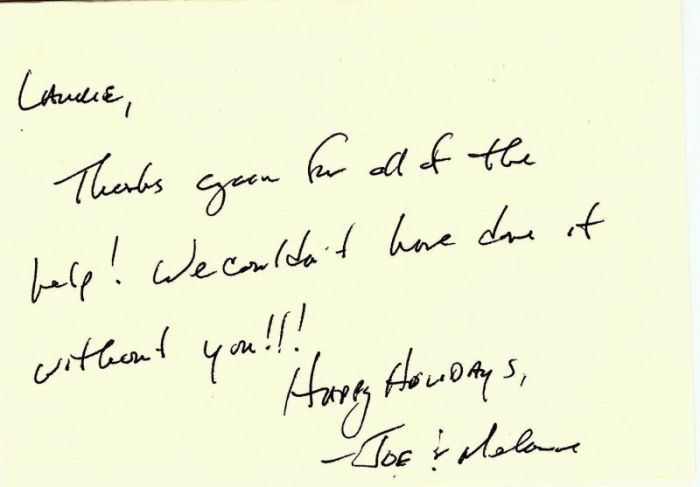 Laurie,
Thanks again for all of the
help! We couldn't have done it
without you!!!
Happy Holidays,
- Joe & Melanie